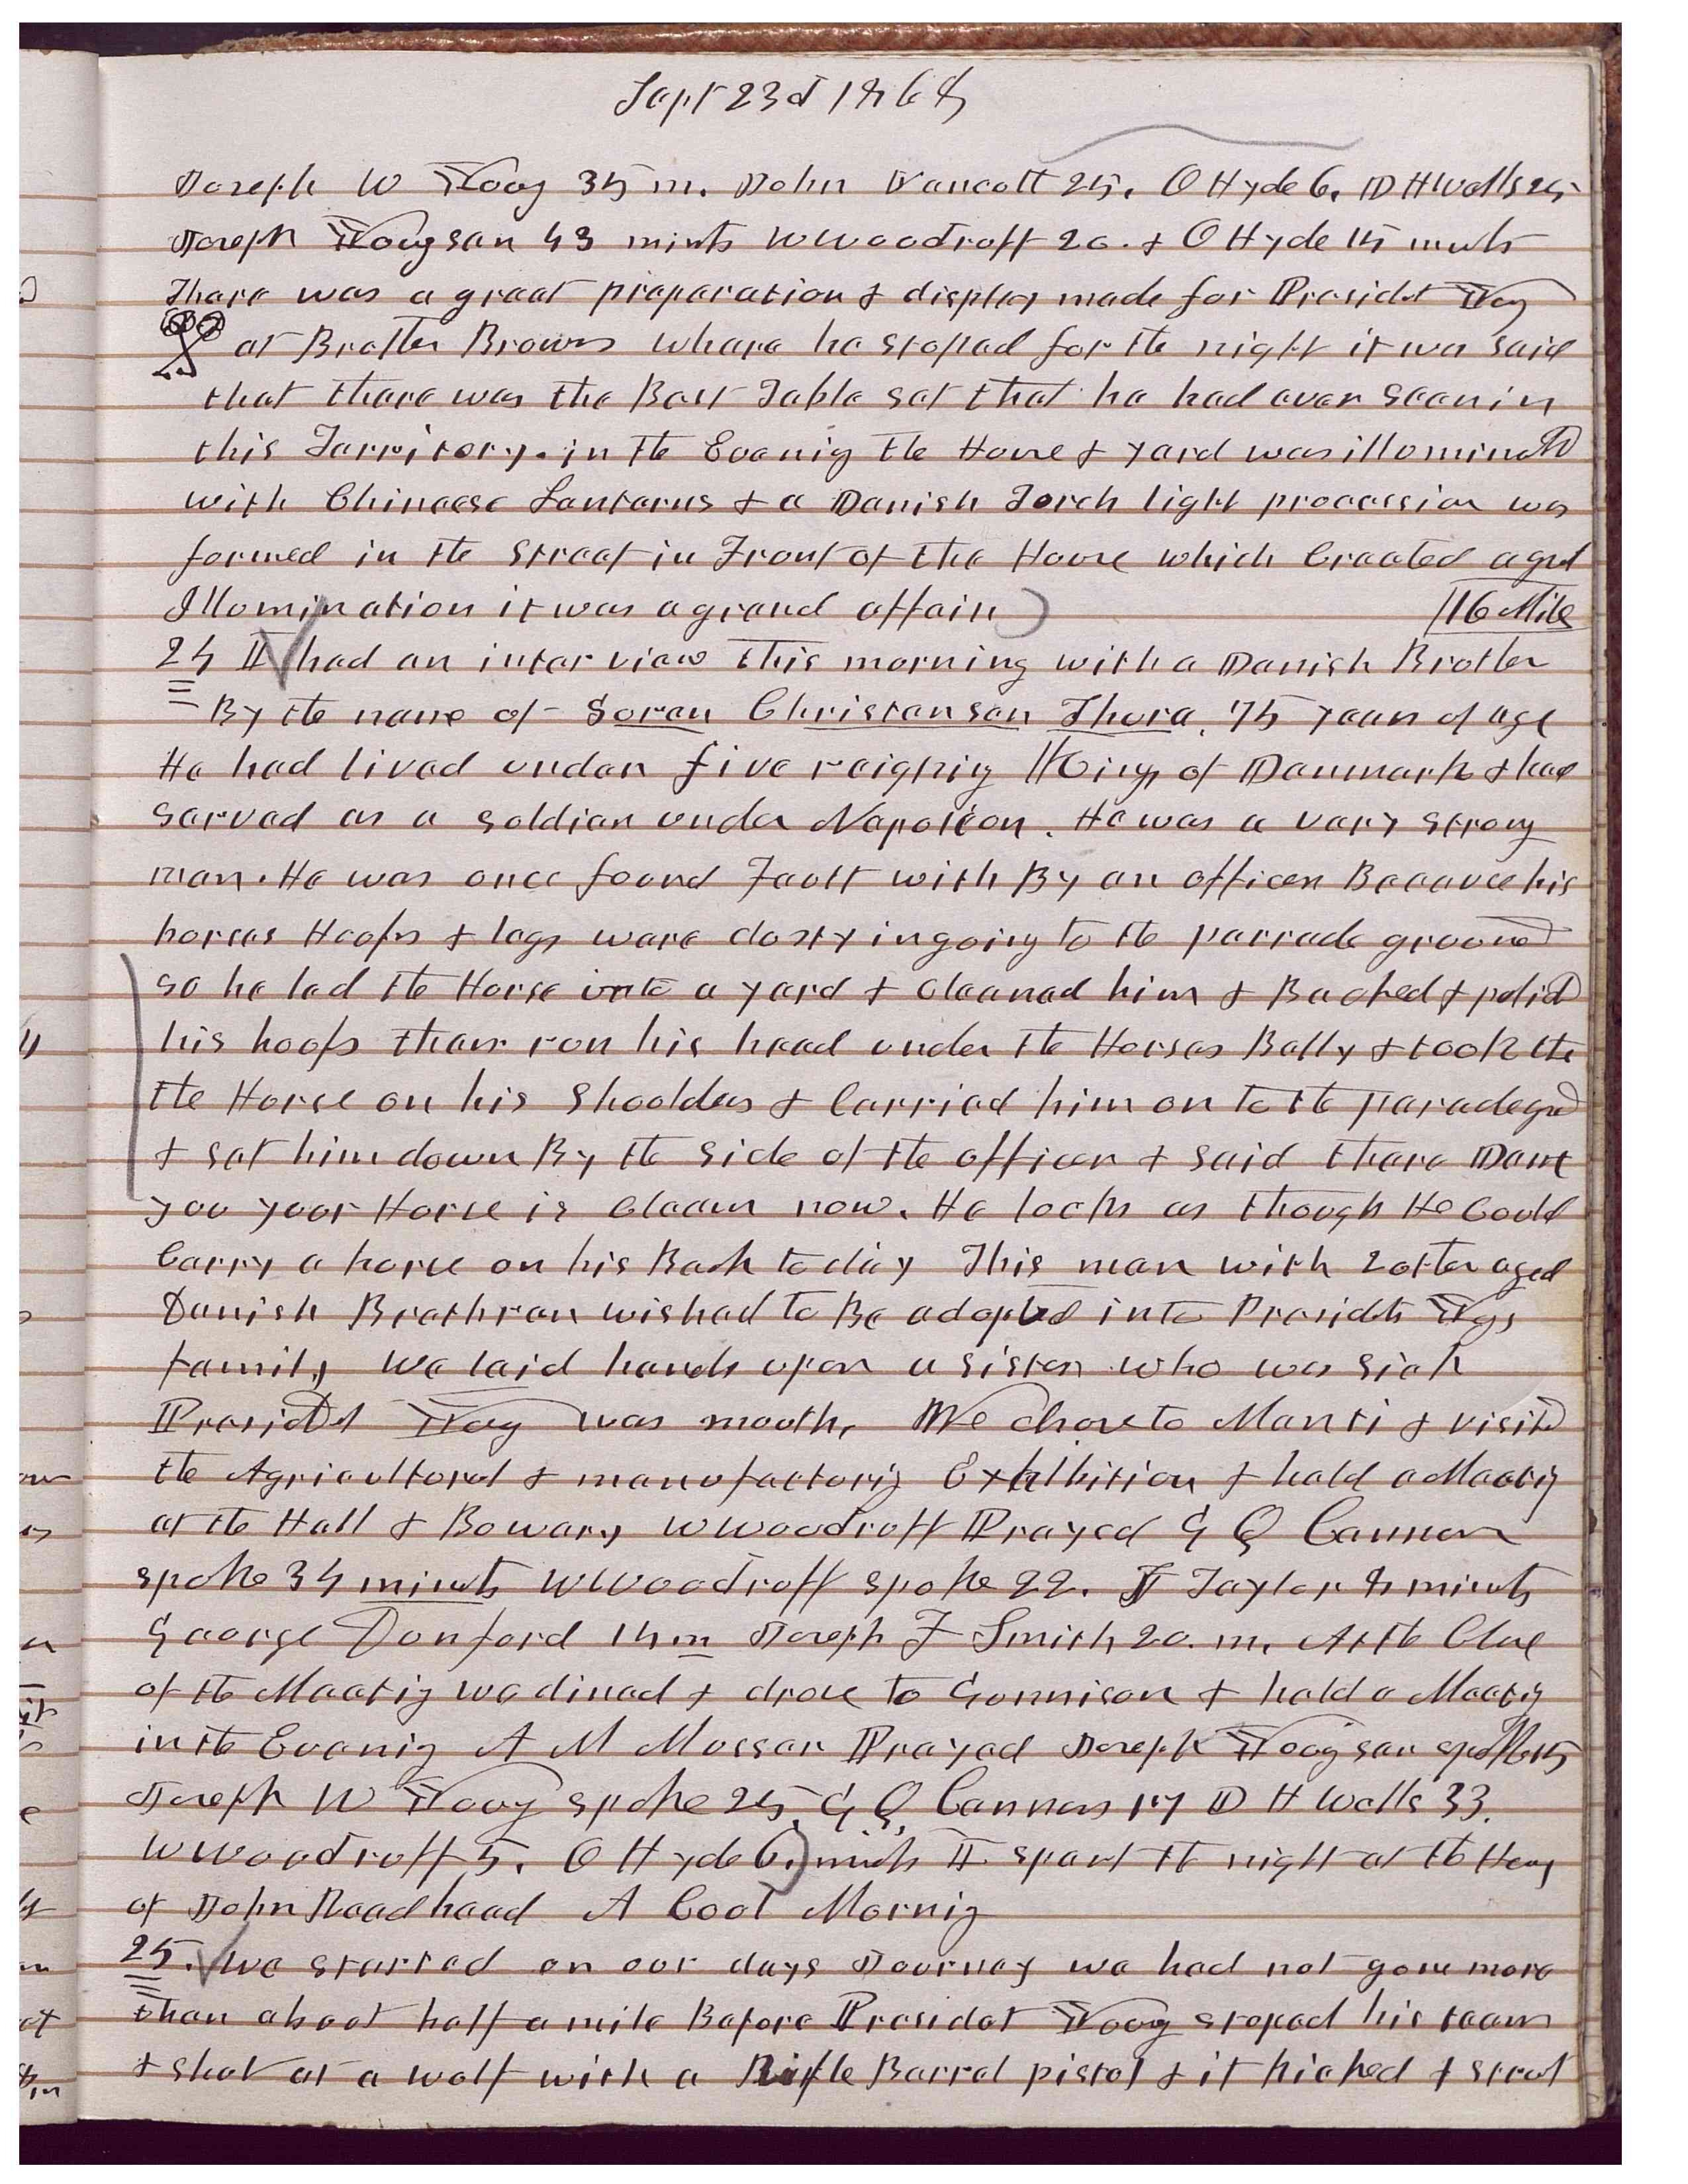 Sept 23d 1868
Joseph W Young 35 m. John Vancott 25, O Hyde 6, D H Wells 25
Joseph Young sen 43 minuts W Woodruff 20. & O Hyde 15 minuts
There was a great preparation & display made for Presidet Young
at Brother Browns whare he stoped for the night it was said
that there was the Best Table set that he had ever seen in
this Territory. in the Evening the House & yard was illuminated
with Chineese Lanterns & a Danish Torch light procession was
formed in the street in Front of the House which Created a great
Illumination it was a grand affair) 16 Mile
24 I had an interview this morning with a Danish Brother
By the name of Soren Christensen Thura, 75 years of age
He had lived under five reigning Kings of Denmark & had
served as a soldier under Napoleon. He was a very strong
man. He was once found Fault with By an officer Because his
horses Hoofs & legs ware dusty in going to the parrade ground
so he led the Horse into a yard & cleaned him & Backed & polid
his hoofs then run his head under the Horses Belly & took the
the Horse on his Shoulders & Carried him on to the parade ground
& set him down By the side of the officer & said there Dam
you your Horse is Clean now. He looks as though He Could
Carry a horse on his Back to day This man with 2 other aged
Danish Brethren wished to Be adopted into Presidets Youngs
family We laid hands upon a sister who was sick
Presidet Young was mouth, We drove to Manti & visited
the Agricultural & manufactoring Exhibition & held a Meeting
at the Hall & Bowery W Woodruff Prayed G Q Cannon
spoke 34 minuts W Woodruff spoke 22. J Taylor 8 minuts
George Dunford 14 m Joseph F Smith 20. m. At the Close
of the Meeting we dined & drove to Gunnison & held a Meeting
in the Evening A M Musser Prayed Joseph Young sen spoke 15
Joseph W Young spoke 25, G Q Cannon 17 D H Wells 33.
W Woodruff 5. O Hyde 6.) minuts I spent the night at the House
of John Readhead A Cool Morning
25. We started on our days Journey we had not gone more
than about half a mile Before Presidet Young stoped his team
& shot at a wolf with a Rifle Barrel pistol & it kicked & struct